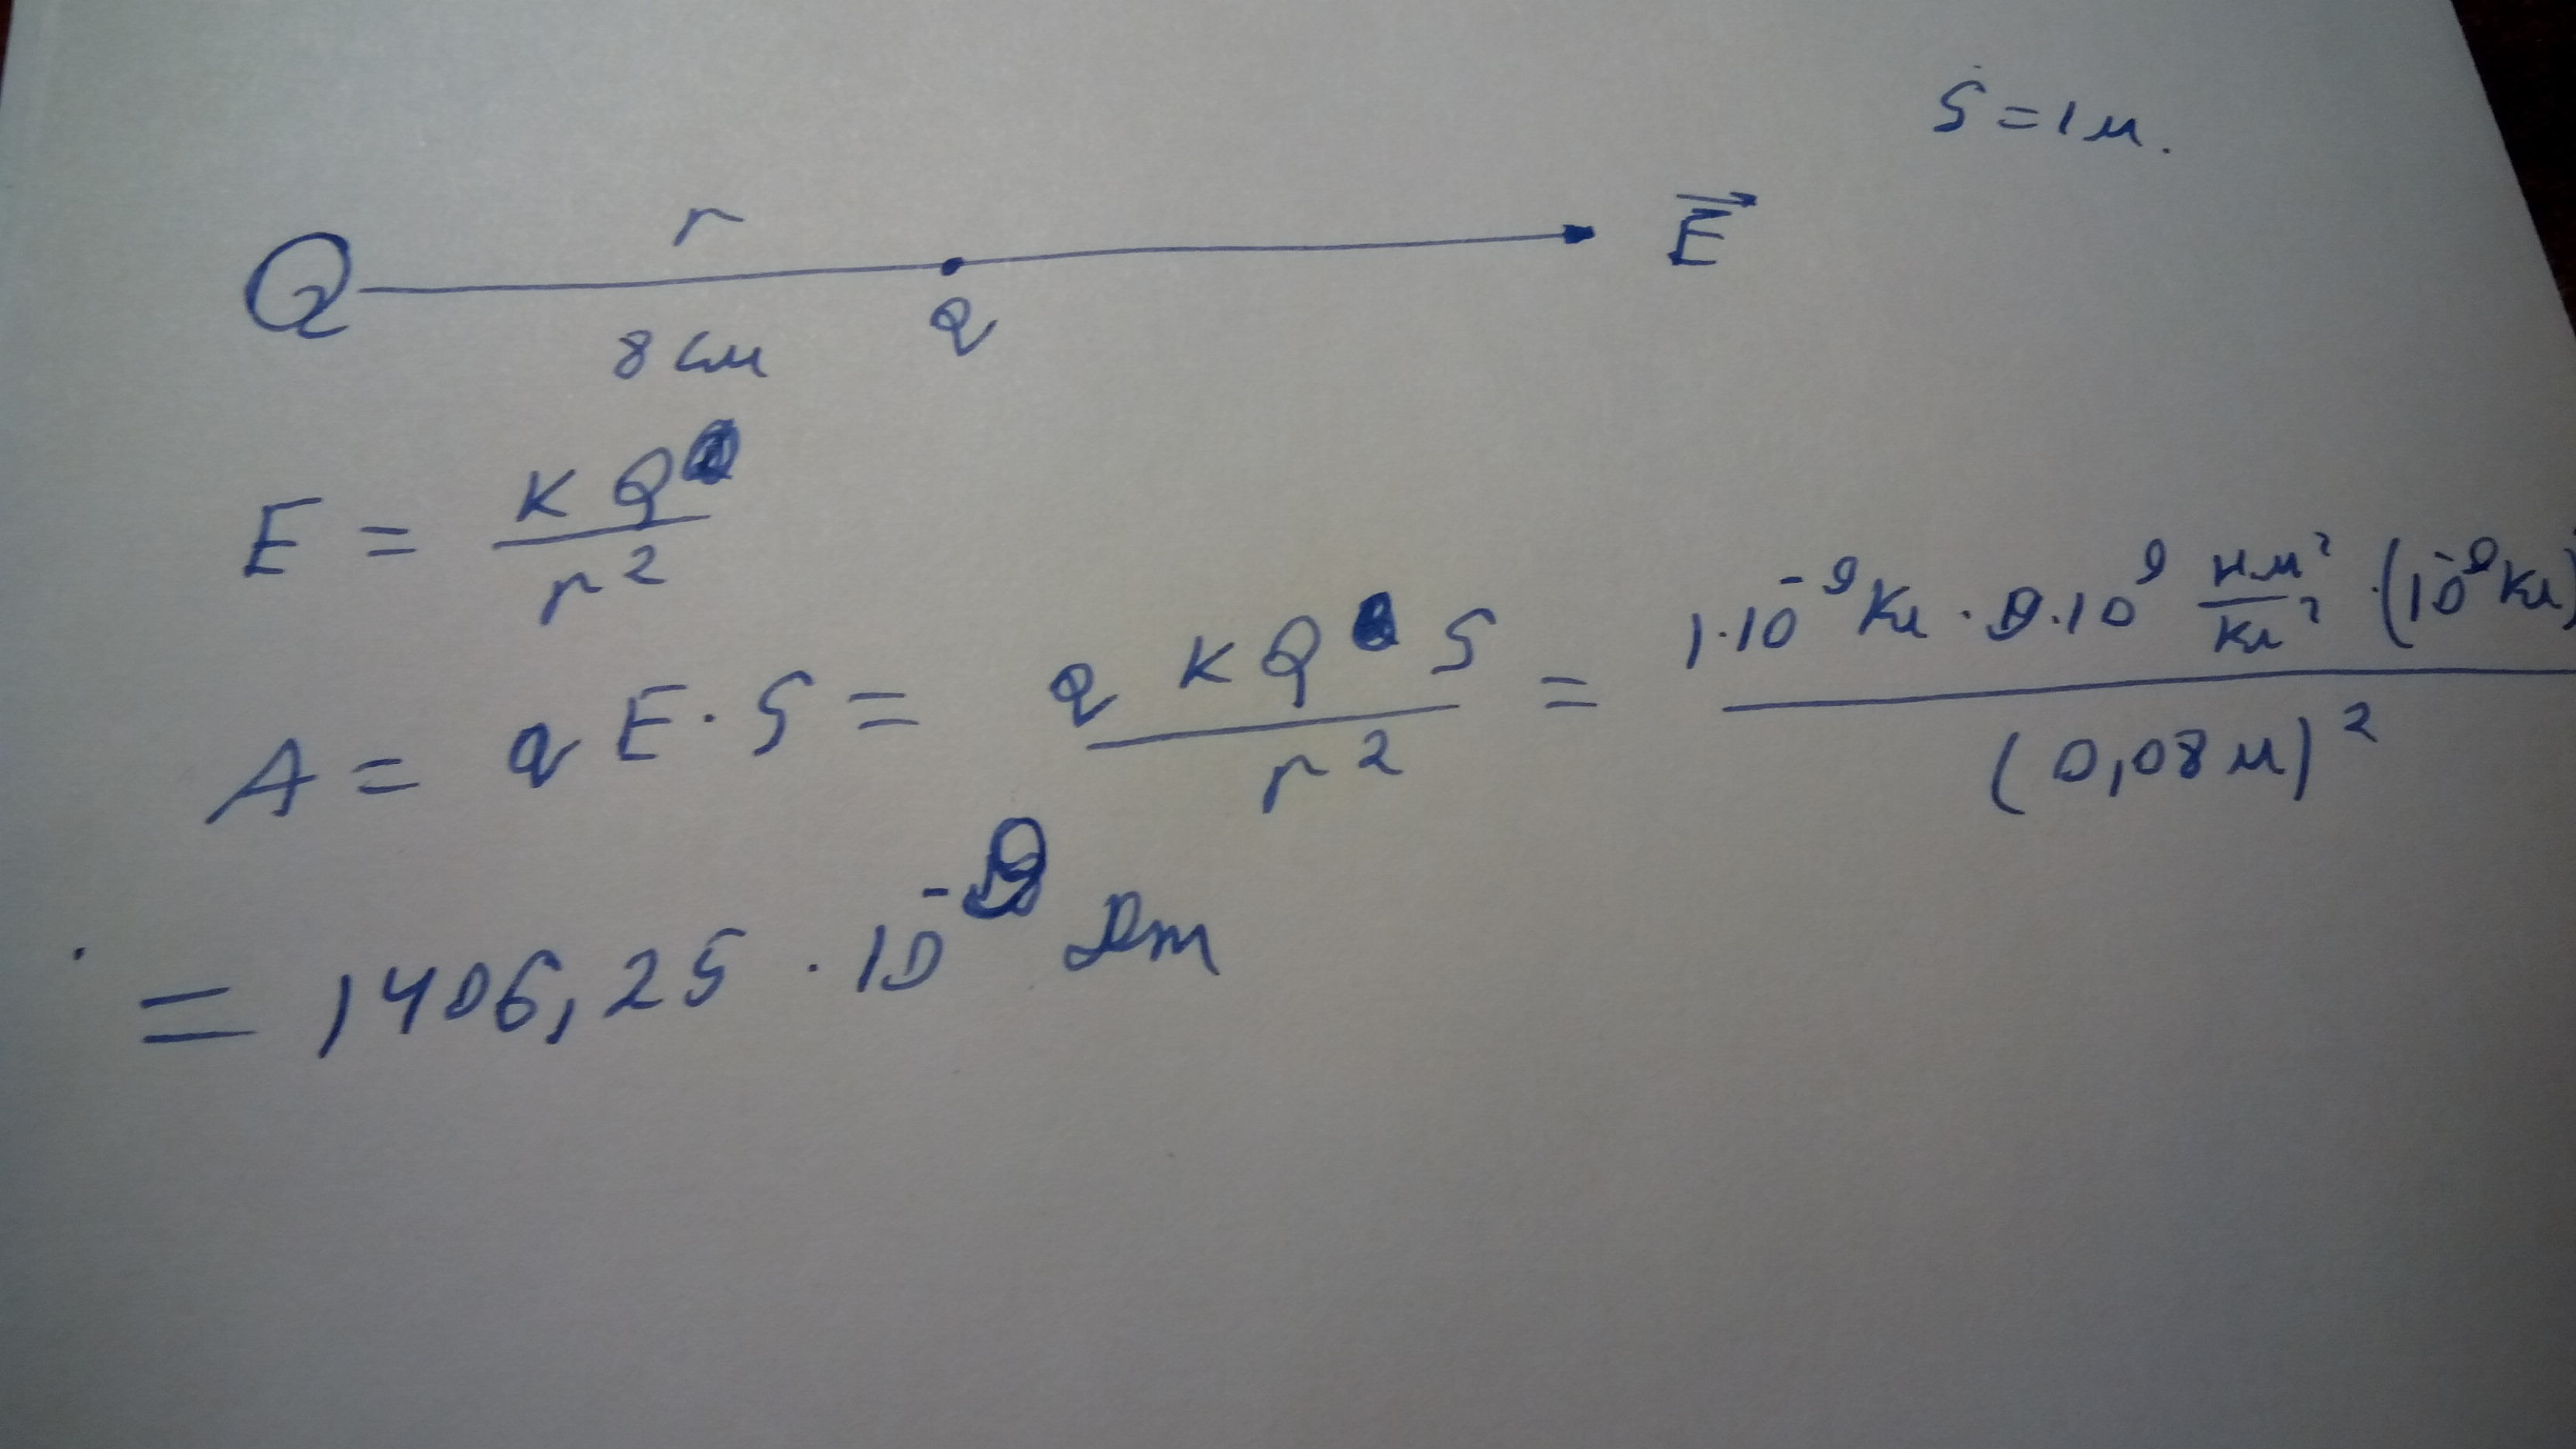 S = 1 м.
r
Q
E
q
8 см
E = k Q / r²
A = q E · S = q k Q S / r² = 1 · 10⁻⁹ Кл · 9 · 10⁹ Нм² / Кл² · (10⁻⁹ Кл) / (0,08 м)²
= 1406,25 · 10⁻⁹ Дж